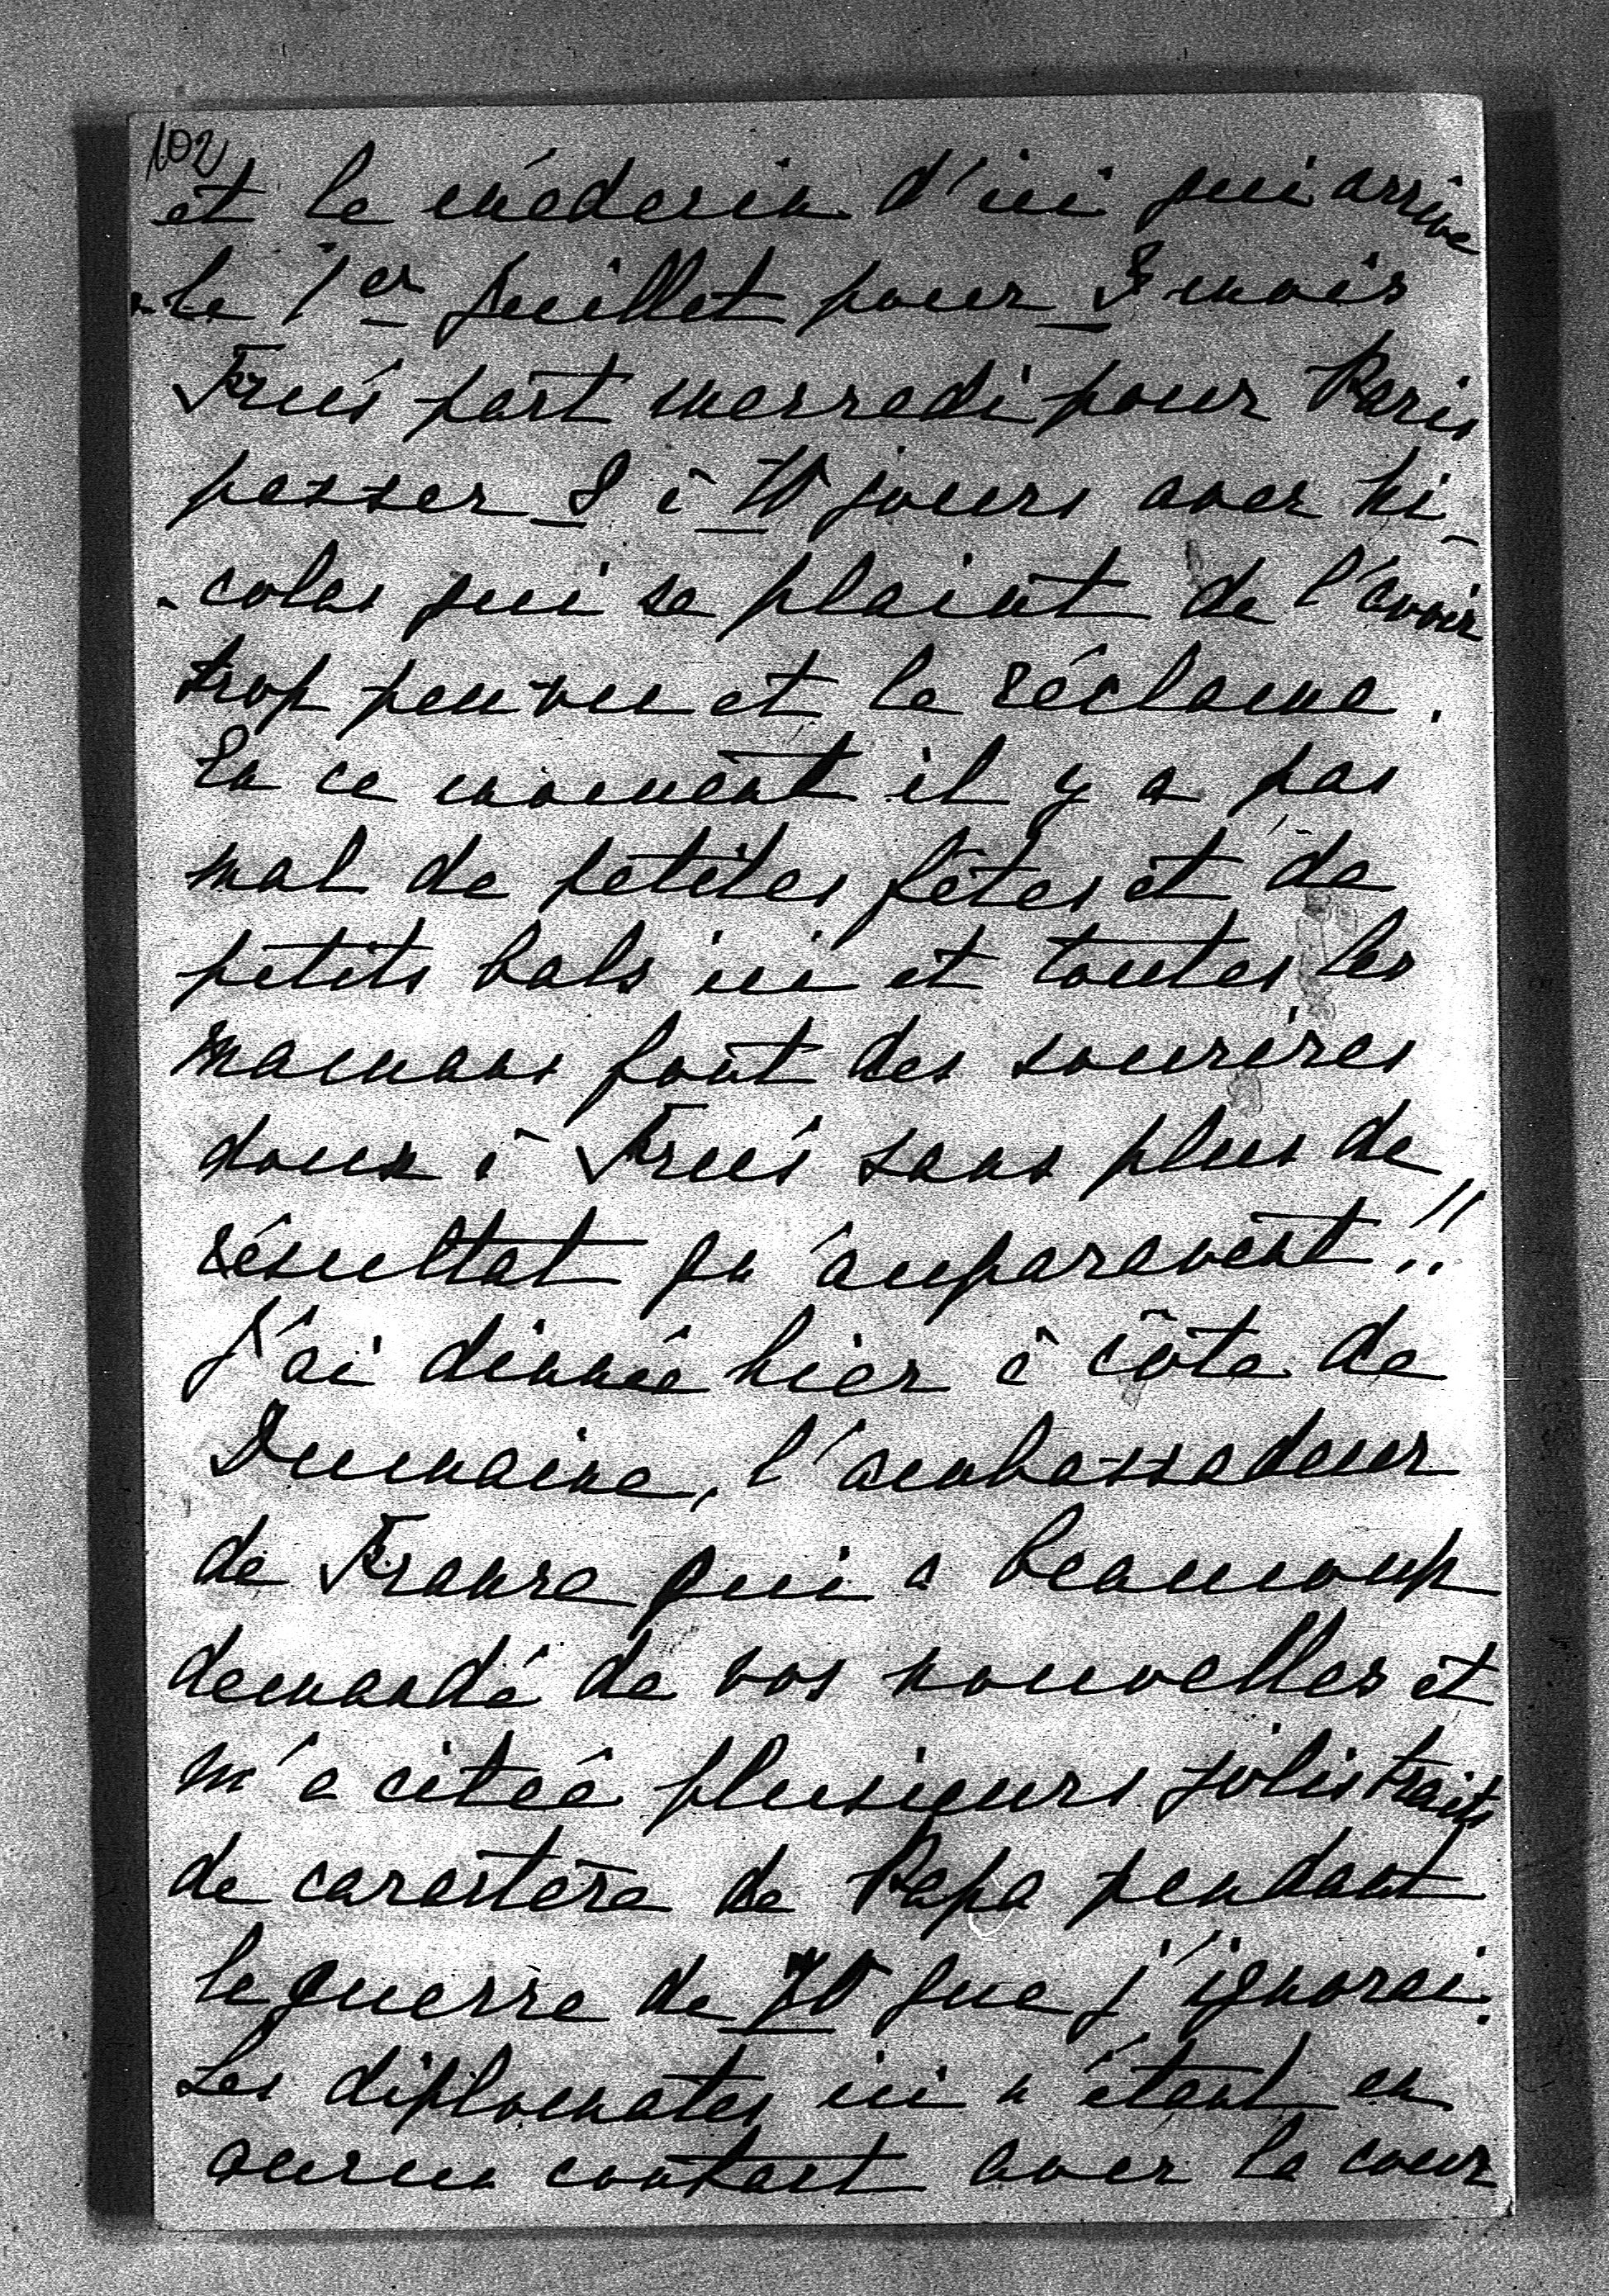 102
et le médecin d'ici qui arrive
le 1er Juillet pour 3 mois
part mercredi pour Paris
passer 8 à 10 jours avec Ni-
-colas qui se plaint de l'avoir
trop peu vu et le réclame.
En ce moment il y a pas
mal de petites fêtes et de
petits bals ici et toutes les
mamans font des sourires
doux à sans plus de
résultat qu'auparavant!!
J'ai dinnée hier à côte de
Dumaine, l'ambassadeur
de France qui a beaucoup
demandé de vos nouvelles et
m'a citeé plusieurs jolis traits
de caractère de Papa pendant
la guerre de 70 que j'ignorai.
Les diplomates ici n'étant en
aucun contact avec la cour